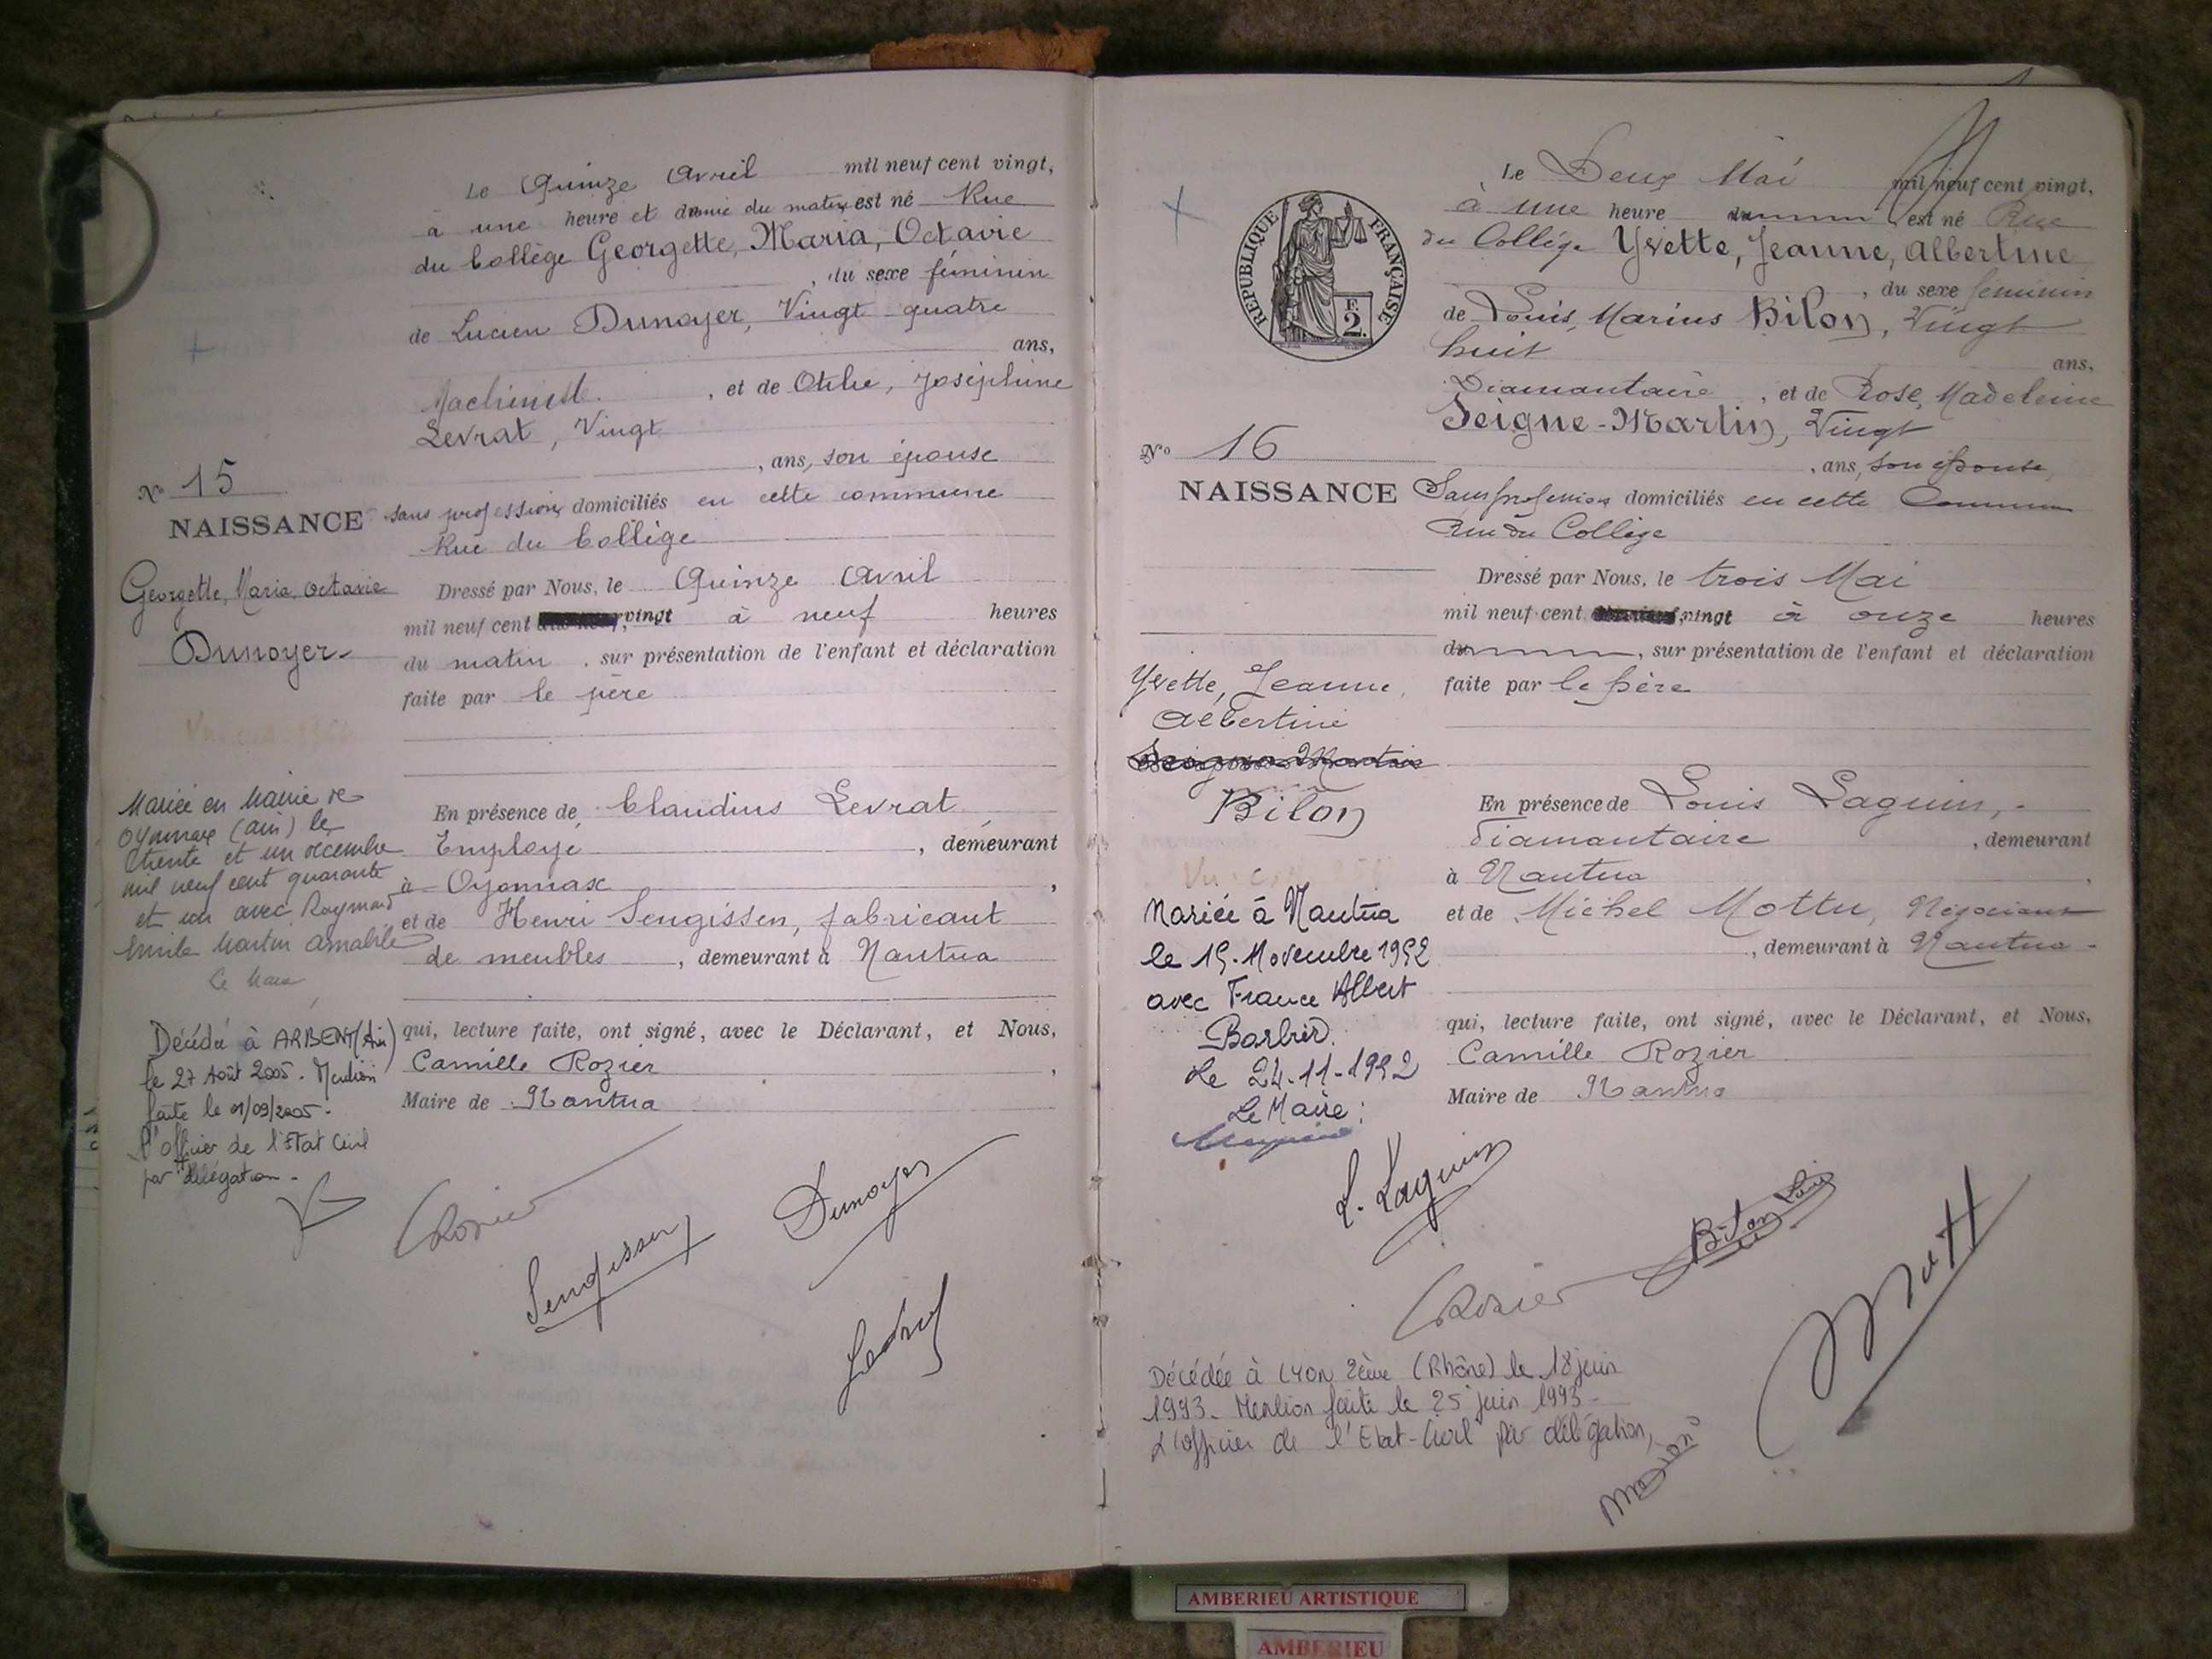 Le Quinze Avril mil neuf cent vingt,
à une heure et demie du matin est né Rue
du Collège Georgette, Maria, Octavie
, du sexe féminin
de Lucien Dunoyer, Vingt quatre
ans,
Machiniste , et de Otilie, Joséphine
Levrat, Vingt
, ans, son épouse
No 15
NAISSANCE
sans profession, domiciliés en cette commune
Rue du Collège
Georgette, Maria, Octavie
Dunoyer
Dressé par Nous, le Quinze Avril
mil neuf cent vingt à neuf heures
du matin , sur présentation de l'enfant et déclaration
faite par le père
Mariée en Mairie de
Oyonnax (ain) le
trente et un décembre
mil neuf cent quarante
et un avec Raymond
Emile Martin Amabile
Le Maire
En présence de Claudius Levrat,
Employé , demeurant
à Oyonnax ,
et de Henri Sengissen, fabricant
de meubles , demeurant à Nantua
Décédée à ARBENT (Ain)
le 27 Août 2005. Mention
faite le 01/09/2005.
L'officier de l'Etat Civil
par délégation -
qui, lecture faite, ont signé, avec le Déclarant, et Nous,
Camille Rozier ,
Maire de Nantua
Rozier
Sengissen
Dunoyer
Le Deux Mai mil neuf cent vingt,
à une heure du est né Rue
du Collège Yvette, Jeanne, Albertine
, du sexe féminin
de Louis, Marius Bilon, Vingt
huit ans,
Diamantaire , et de Rose, Madeleine
Seigne-Martin, Vingt
, ans, son épouse,
RÉPUBLIQUE FRANÇAISE
F.
2.
No 16
NAISSANCE
Sans profession, domiciliés en cette Commune
Rue du Collège
Dressé par Nous, le trois Mai
mil neuf cent vingt à onze heures
du , sur présentation de l'enfant et déclaration
faite par le père
Yvette, Jeanne,
Albertine
Seigne-Martin
Bilon
En présence de Louis Laguin,
diamantaire , demeurant
à Nantua ,
et de Michel Mottu, Négociant
, demeurant à Nantua
Mariée à Nantua
le 15 Novembre 1952
avec France Albert
Barbier.
Le 24-11-1952
Le Maire :
qui, lecture faite, ont signé, avec le Déclarant, et Nous,
Camille Rozier
Maire de Nantua
L. Laguin
Bilon Louis
Rozier
Décédée à LYON 2ème (Rhône) le 18 juin
1993. Mention faite le 25 juin 1993 -
L'officier de l'Etat-Civil par délégation,
AMBERIEU ARTISTIQUE
AMBERIEU